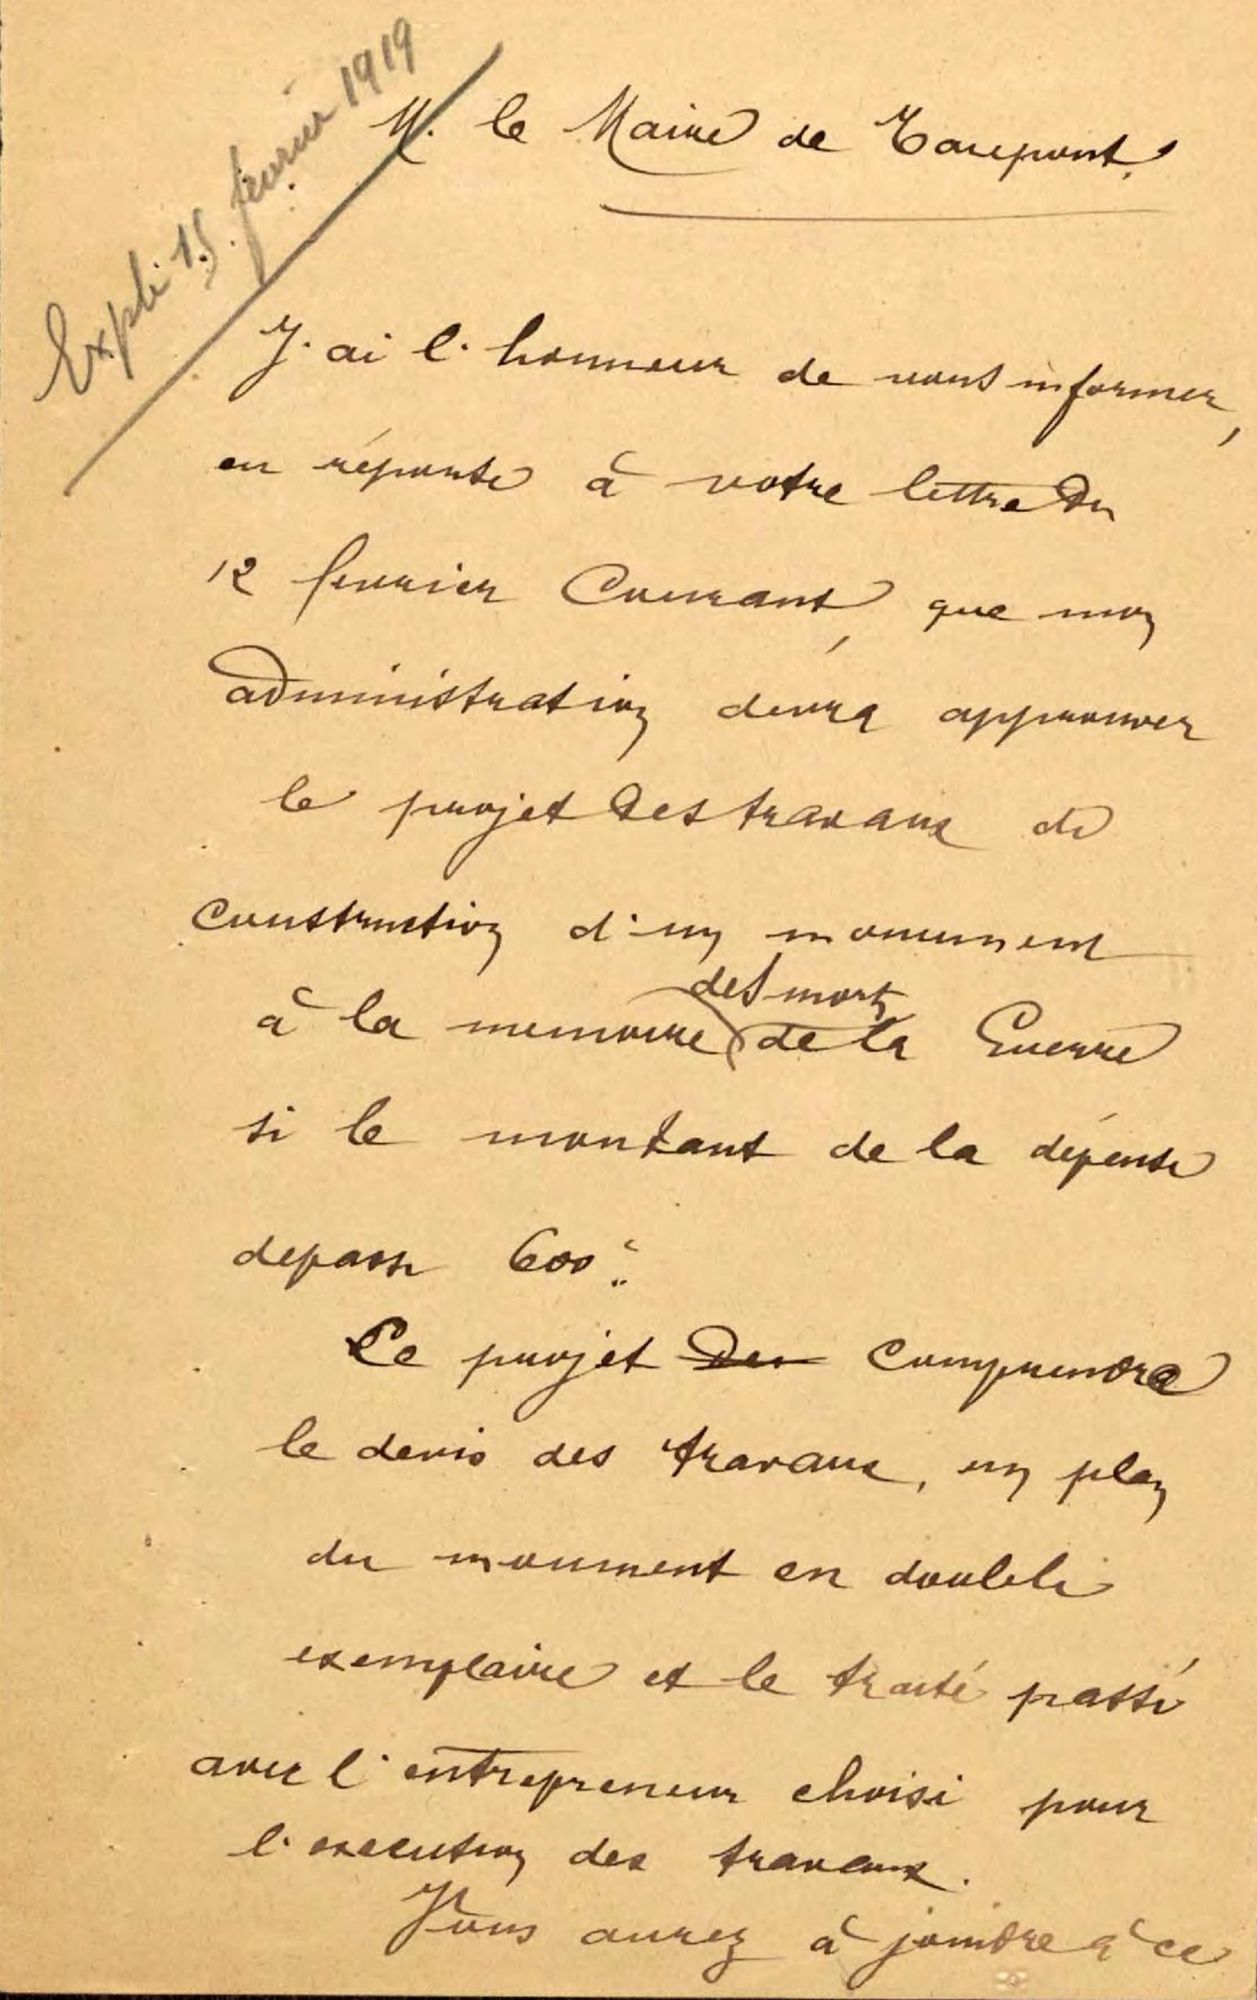 Expdi 15 février 1919
M. le Maire de Taupont.
J'ai l'honneur de vous informer,
en réponse à votre lettre du
12 février Courant, que mon
administration devra approuver
le projet des travaux de
construction d'un monument
des morts
à la memoire de la Guerre
si le montant de la dépense
depasse 600
Ce projet comprendra
le devis des travaux, un plan
du monument en double
exemplaire et le traité passé
avec l'entrepreneur choisi pour
l'execution des travaux.
Vous aurez à joindre à ce